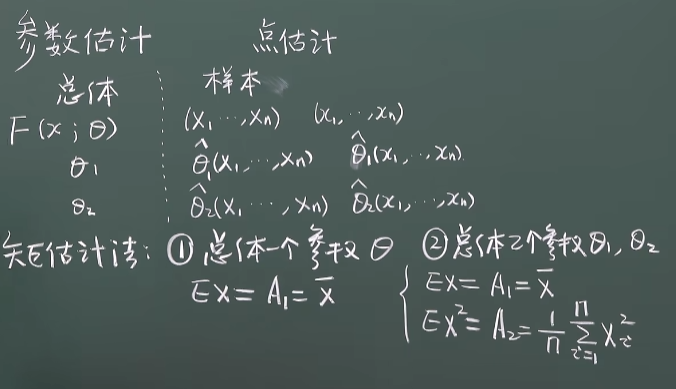 参数估计 点估计
总体 样本
F(x;θ) (X₁,…,Xₙ) (x₁,…,xₙ)
θ₁ θ̂₁(X₁,…,Xₙ) θ̂₁(x₁,…,xₙ)
θ₂ θ̂₂(X₁,…,Xₙ) θ̂₂(x₁,…,xₙ)
矩估计法: ① 总体一个参数 θ ② 总体2个参数 θ₁, θ₂
EX = A₁ = X̄ { EX = A₁ = X̄
EX² = A₂ = 1/n ∑ᵢ₌₁ⁿ Xᵢ²